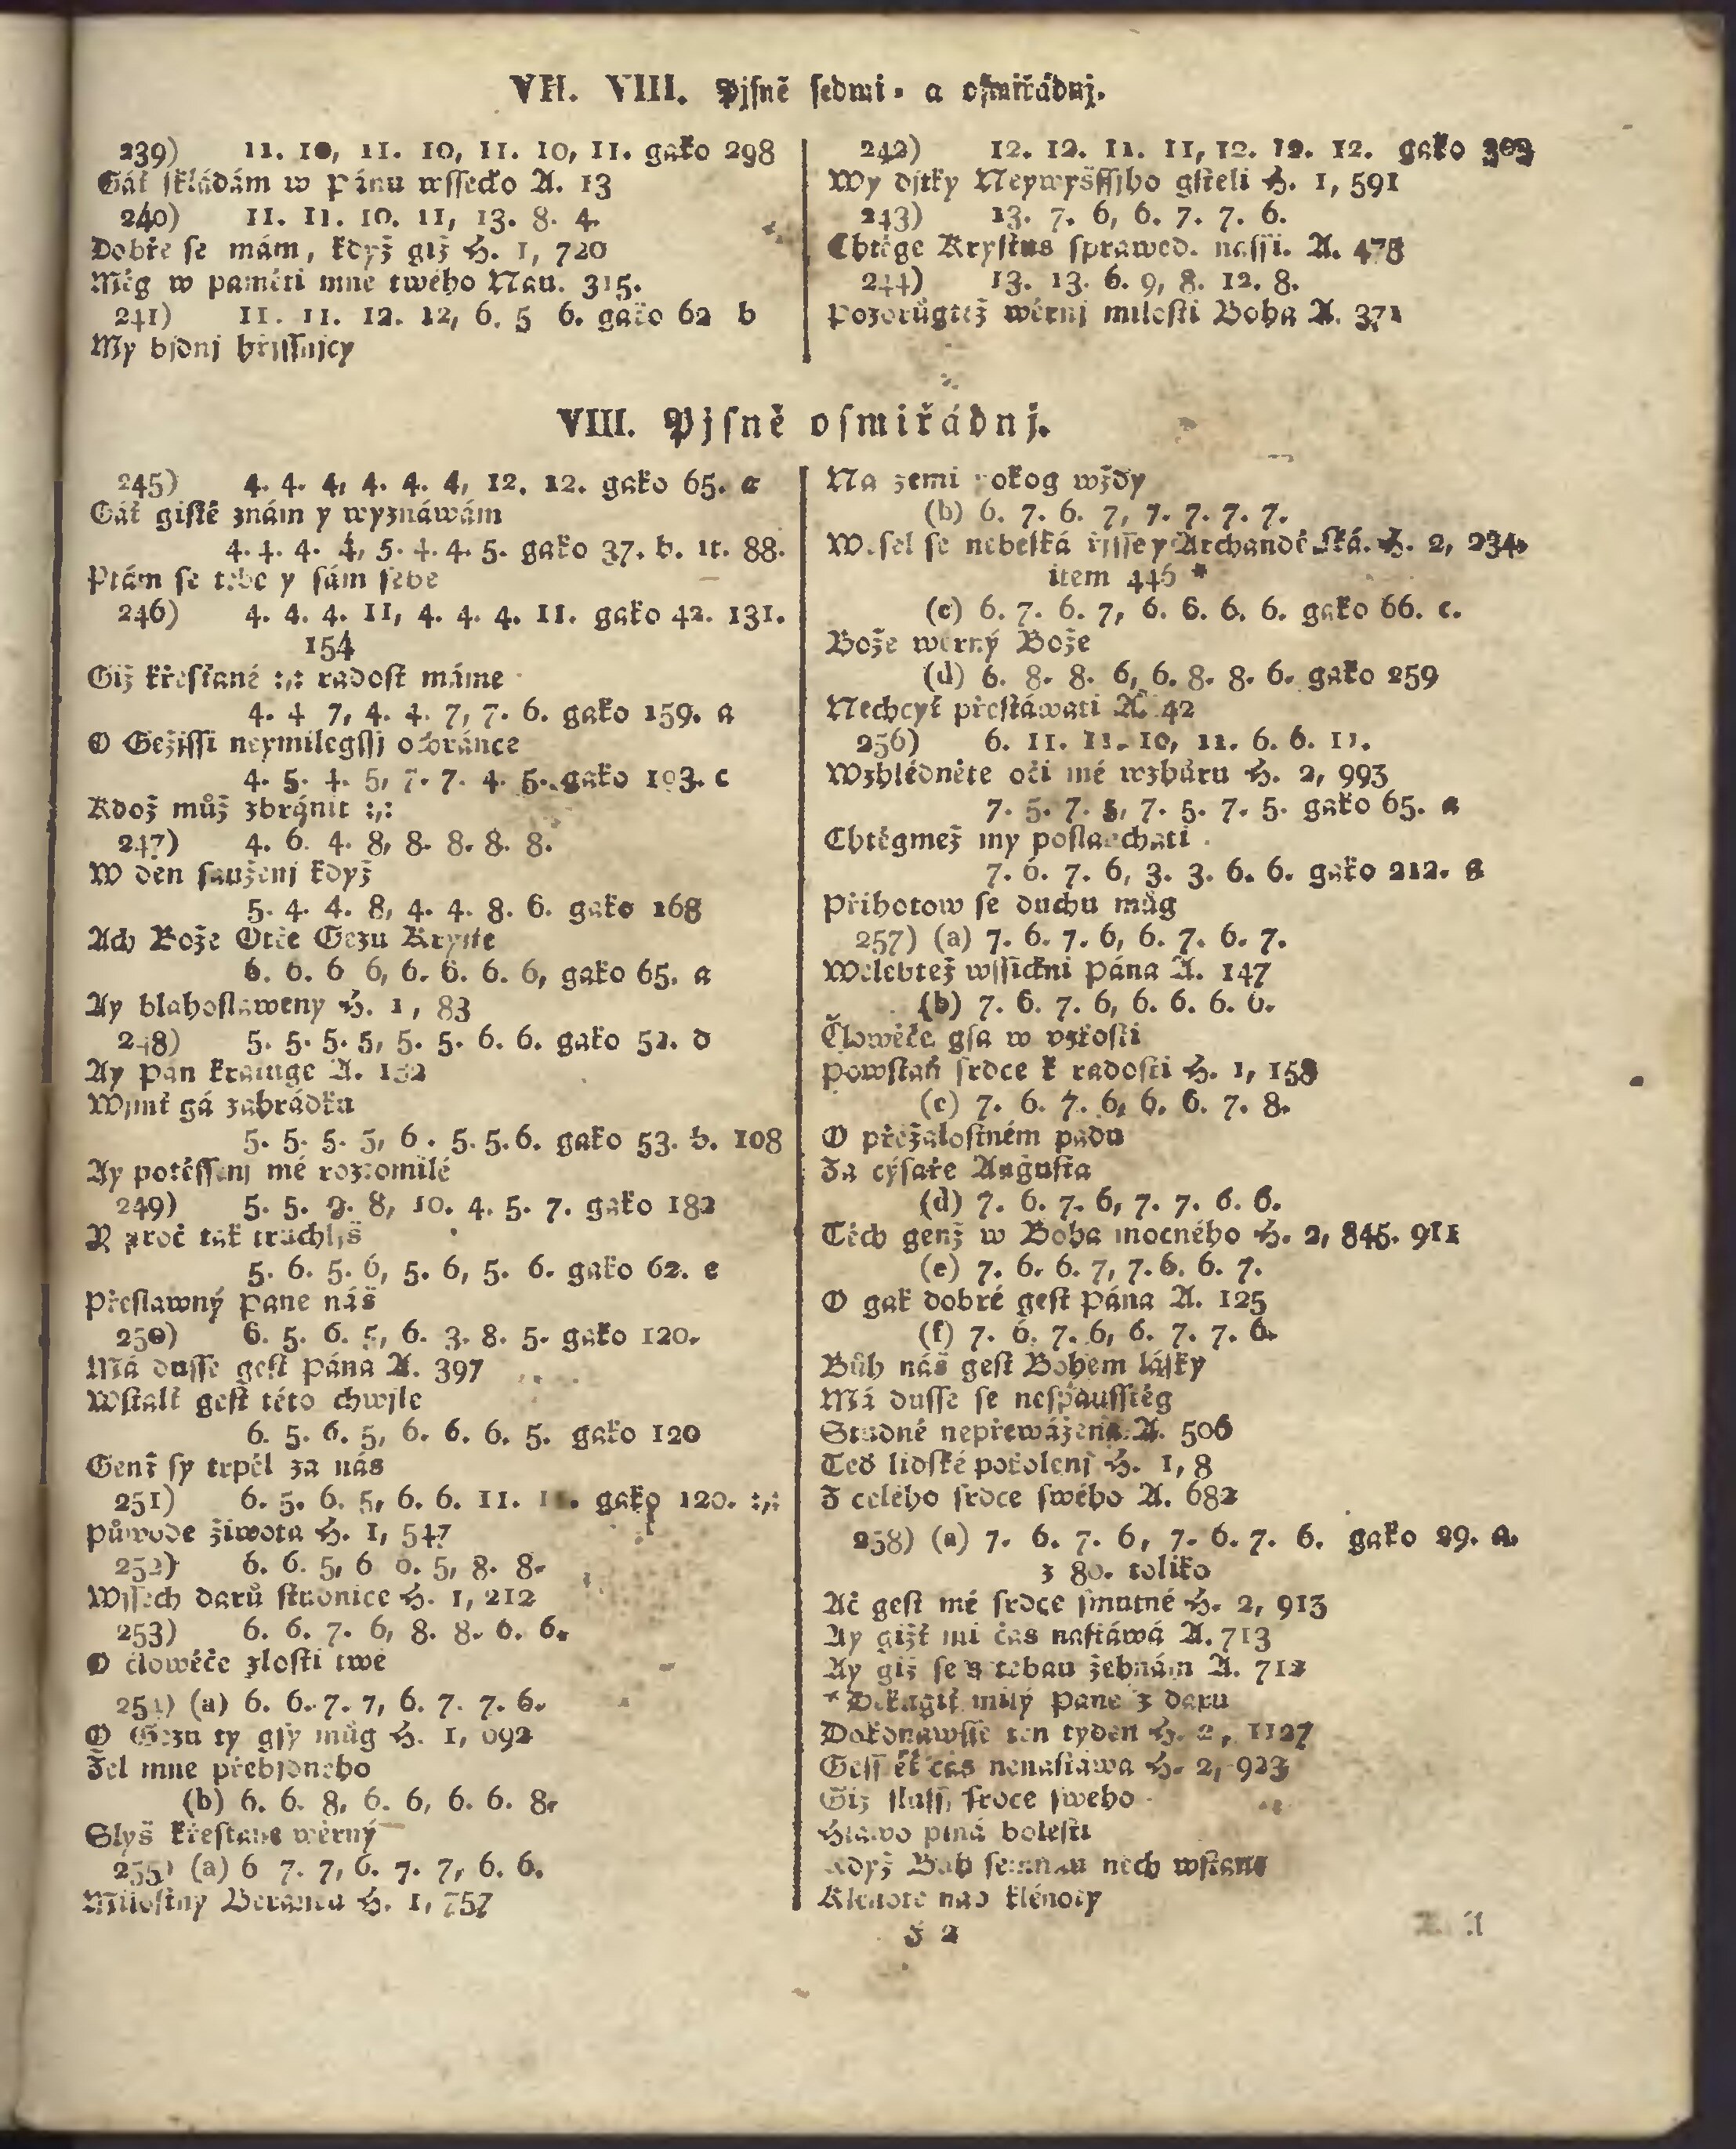 VII. VIII. Pjsně sedmi- a osmiřádnj.
239) 11. 10, 11. 10, 11. 10, 11. gako 298
Gáť skládám w Pánu wssecko A. 13
240) 11. 11. 10. 11, 13. 8. 4.
Dobře se mám, když giž H. 1, 720
Měg w paměti mne twého Nau. 315.
241) 11. 11. 12. 12, 6. 5 6. gako 62 b
My bjdnj hřjssnjcy
242) 12. 12. 11. 11, 12. 12. 12. gako 303
Wy djtky Neywyšssjho gsteli H. 1, 591
243) 13. 7. 6, 6. 7. 7. 6.
Chtěge Krystus sprawed. nassi. A. 478
244) 13. 13. 6. 9, 8. 12. 8.
Pozorůgtež wěrnj milosti Boha A. 371
VIII. Pjsně osmiřádnj.
245) 4. 4. 4, 4. 4. 4, 12. 12. gako 65. a
Gáť gistě znám y wyznáwám
4. 4. 4. 4, 5. 4. 4. 5. gako 37. b. it. 88.
Ptám se tebe y sám sebe
246) 4. 4. 4. 11, 4. 4. 4. 11. gako 42. 131.
154
Giž křesťané :,: radost máme
4. 4 7, 4. 4. 7, 7. 6. gako 159. a
O Gežissi neymilegssj obránce
4. 5. 4. 5, 7. 7. 4. 5. gako 103. c
Kdož můž zbrániť :,:
247) 4. 6. 4. 8, 8. 8. 8. 8.
W den saužení když
5. 4. 4. 8, 4. 4. 8. 6. gako 168
Ach Bože Otče Gezu Kryste
6. 6. 6 6, 6. 6. 6. 6, gako 65. a
Ay blahoslaweny H. 1, 83
248) 5. 5. 5. 5, 5. 5. 6. 6. gako 52. d
Ay Pán kraluge A. 132
Wjmť gá zahrádku
5. 5. 5. 5, 6. 5. 5. 6. gako 53. b. 108
Ay potěssenj mé roztomilé
249) 5. 5. 9. 8, 10. 4. 5. 7. gako 182
Y proč tak truchljš
5. 6. 5. 6, 5. 6, 5. 6. gako 62. e
Přeslawný Pane náš
250) 6. 5. 6. 5, 6. 3. 8. 5. gako 120.
Má dusse gest Pána A. 397
Wstalť gest této chwjle
6. 5. 6. 5, 6. 6. 6. 5. gako 120
Genž sy trpěl za nás
251) 6. 5. 6. 5, 6. 6. 11. 11. gako 120. :,:
Půwode žiwota H. 1, 547
252) 6. 6. 5, 6 6. 5, 8. 8.
Wssech darů studnice H. 1, 212
253) 6. 6. 7. 6, 8. 8. 6. 6.
O člowěče zlosti twé
254) (a) 6. 6. 7. 7, 6. 7. 7. 6.
O Gezu ty gsy můg H. 1, 692
Žel mne přebjdného
(b) 6. 6. 8, 6. 6, 6. 6. 8.
Slyš křestane wěrný
255) (a) 6 7. 7, 6. 7. 7, 6. 6.
Milostný Beránku H. 1, 757
Na zemi pokog wždy
(b) 6. 7. 6. 7, 7. 7. 7. 7.
Wesel se nebeská řjsse y Archandělská. H. 2, 234.
item 446 *
(c) 6. 7. 6. 7, 6. 6. 6. 6. gako 66. c.
Bože wěrný Bože
(d) 6. 8. 8. 6, 6. 8. 8. 6. gako 259
Nechcyť přestáwati A. 42
256) 6. 11. 11. 10, 11. 6. 6. 11.
Wzhlédněte oči mé wzhůru H. 2, 993
7. 5. 7. 5, 7. 5. 7. 5. gako 65. a
Chtěgmež my poslauchati
7. 6. 7. 6, 3. 3. 6. 6. gako 212. a
Přihotow se duchu můg
257) (a) 7. 6. 7. 6, 6. 7. 6. 7.
Welebtež wssickni Pána A. 147
(b) 7. 6. 7. 6, 6. 6. 6. 6.
Člowěče gsa w vzkosti
Powstaň srdce k radosti H. 1, 158
(c) 7. 6. 7. 6, 6. 6. 7. 8.
O přežalostném pádu
Za cýsaře Augusta
(d) 7. 6. 7. 6, 7. 7. 6. 6.
Těch genž w Boha mocného H. 2, 845. 911
(e) 7. 6. 6. 7, 7. 6. 6. 7.
O gak dobré gest Pána A. 125
(f) 7. 6. 7. 6, 6. 7. 7. 6.
Bůh náš gest Bohem lásky
Má dusse se nespausstěg
Studně nepřewážená A. 506
Teď lidské pokolenj H. 1, 8
Z celého srdce swého A. 682
258) (a) 7. 6. 7. 6, 7. 6. 7. 6. gako 29. a.
z 80. toliko
Ač gest mé srdce smutné H. 2, 913
Ay gižť mi čas nastáwá A. 713
Ay giž se s tebau žehnám A. 712
* Děkugiť milý Pane z daru
Dokonawsse ten tyden H. 2, 1127
Gessťěť čas nenastáwa H. 2, 923
Giž slussj srdce swého
Hlawo plná bolesti
Když Bůh semnau nech wstane
Klenote nad klénoty
z 2